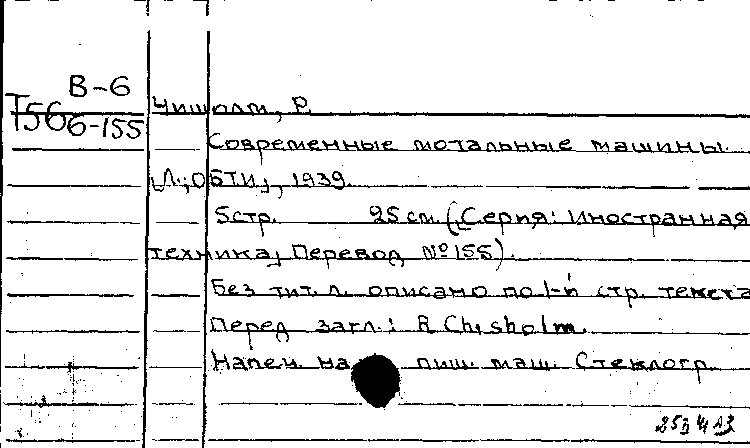 В-6
Т56 6-155
Чишолм, Р.
Современные мотальные машины.
[Л.; ОБТИ], 1939.
5 стр. 25 см. (Серия: Иностранная
техника, Перевод № 155).
Без тит. л. описано по 1-й стр. текста
Перед загл.: R Chisholm.
Напеч. на пиш. маш. Стеклогр.